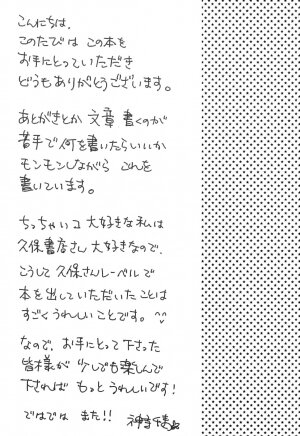 こんにちは、
このたびは この本を
お手にとっていただき
どうもありがとうございます。
あとがきとか 文章 書くのが
苦手で 何を書いたらいいか
モンモンしながら これを
書いています。
ちっちゃいコ 大好きな私は
久保書店さん 大好きなので、
こうして 久保さんレーベルで
本を出していただいたことは
すごくうれしいことです。
なので、お手にとって下さった
皆様が 少しでも楽しんで
下されば もっと うれしいです!
ではでは また!!